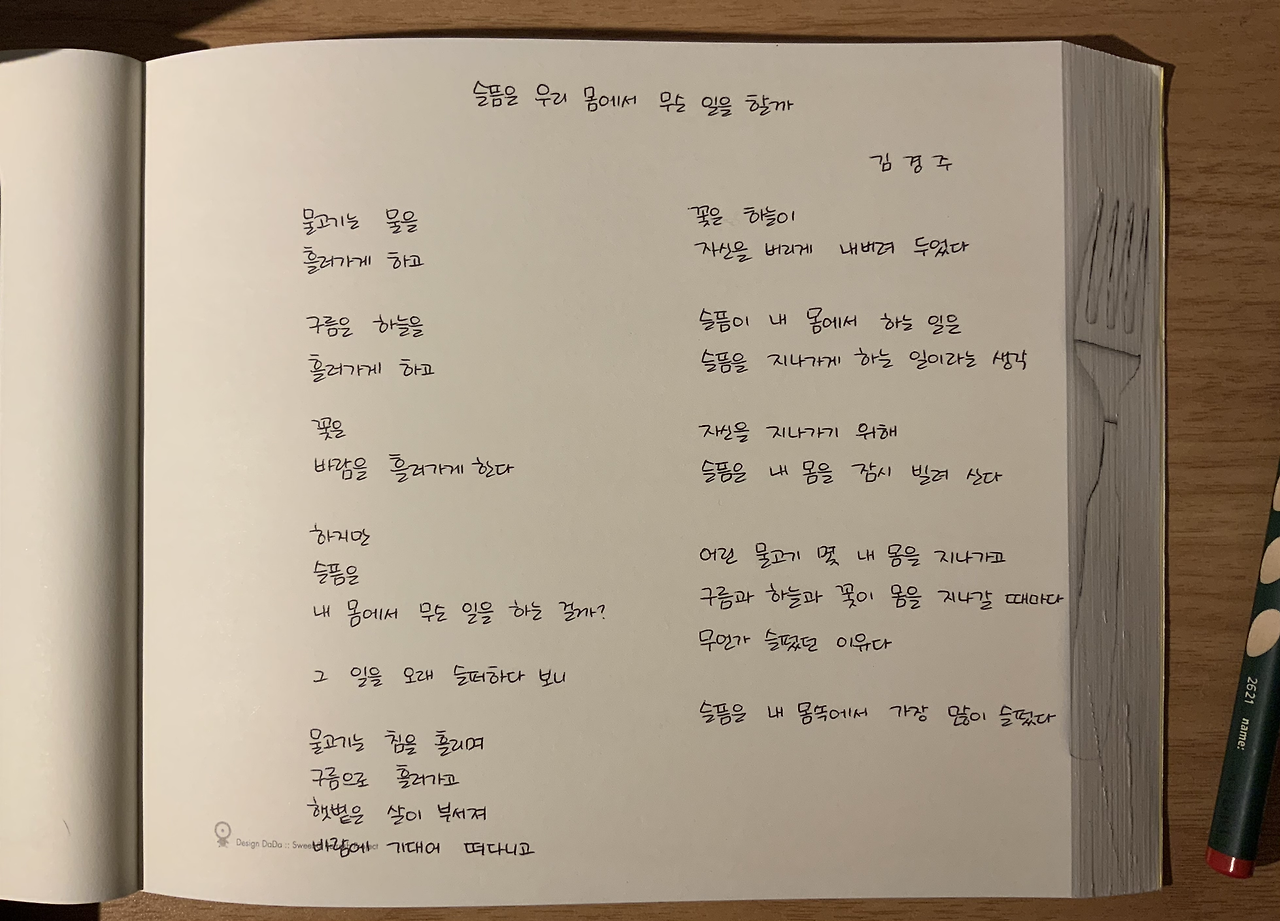 슬픔은 우리 몸에서 무슨 일을 할까
김경주
물고기는 물을
흘러가게 하고
구름은 하늘을
흘러가게 하고
꽃은
바람을 흘러가게 한다
하지만
슬픔은
내 몸에서 무슨 일을 하는 걸까?
그 일을 오래 슬퍼하다 보니
물고기는 침을 흘리며
구름으로 흘러가고
햇볕은 살이 부서져
바람에 기대어 떠다니고
꽃은 하늘이
자신을 버리게 내버려 두었다
슬픔이 내 몸에서 하는 일은
슬픔을 지나가게 하는 일이라는 생각
자신을 지나가기 위해
슬픔은 내 몸을 잠시 빌려 산다
어린 물고기 몇 내 몸을 지나가고
구름과 하늘과 꽃이 몸을 지나갈 때마다
무언가 슬펐던 이유다
슬픔은 내 몸쪽에서 가장 많이 슬펐다
Design DaDa :: Swee
2621 name: